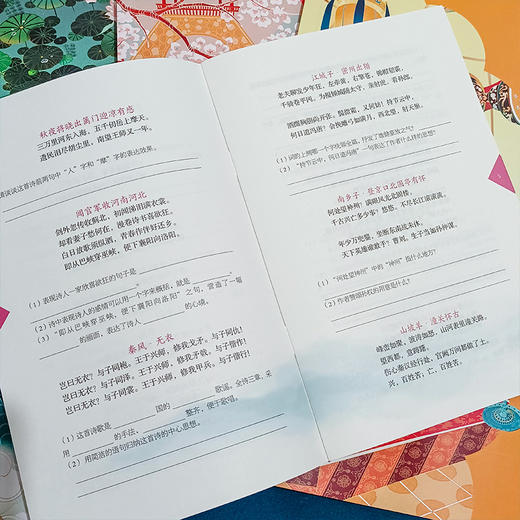 秋夜将晓出篱门迎凉有感
三万里河东入海，五千仞岳上摩天。
遗民泪尽胡尘里，南望王师又一年。
谈谈这首诗前两句中“入”字和“摩”字的表达效果。
闻官军收河南河北
剑外忽传收蓟北，初闻涕泪满衣裳。
却看妻子愁何在，漫卷诗书喜欲狂。
白日放歌须纵酒，青春作伴好还乡。
即从巴峡穿巫峡，便下襄阳向洛阳。
（1）表现诗人一家欣喜欲狂的句子是
（2）诗中表现诗人的感情可以用一个字来概括，就是
（3）“即从巴峡穿巫峡，便下襄阳向洛阳”之句，营造了一幅
的画面，表达了诗人 的心境。
秦风·无衣
岂曰无衣？与子同袍。王于兴师，修我戈矛。与子同仇！
岂曰无衣？与子同泽。王于兴师，修我矛戟。与子偕作！
岂曰无衣？与子同裳。王于兴师，修我甲兵。与子偕行！
（1）这首诗歌是 国的 歌谣。全诗三章，采
用 的手法， 整齐，便于歌唱。
（2）用简洁的语句归纳这首诗的中心思想。
江城子·密州出猎
老夫聊发少年狂，左牵黄，右擎苍，锦帽貂裘，
千骑卷平冈。为报倾城随太守，亲射虎，看孙郎。
酒酣胸胆尚开张，鬓微霜，又何妨！持节云中，
何日遣冯唐？会挽雕弓如满月，西北望，射天狼。
（1）词的上阕哪一个字统领全篇，抒发了雄健豪放之气？
（2）“持节云中，何日遣冯唐”一句表达了作者什么样的思想？
南乡子·登京口北固亭有怀
何处望神州？满眼风光北固楼。
千古兴亡多少事？悠悠。不尽长江滚滚流。
年少万兜鍪，坐断东南战未休。
天下英雄谁敌手？曹刘。生子当如孙仲谋。
（1）“何处望神州”中的“神州”指什么地方？
（2）作者赞颂孙权的用意是什么？
山坡羊·潼关怀古
峰峦如聚，波涛如怒，山河表里潼关路。
望西都，意踌躇。
伤心秦汉经行处，宫阙万间都做了土。
兴，百姓苦；亡，百姓苦。